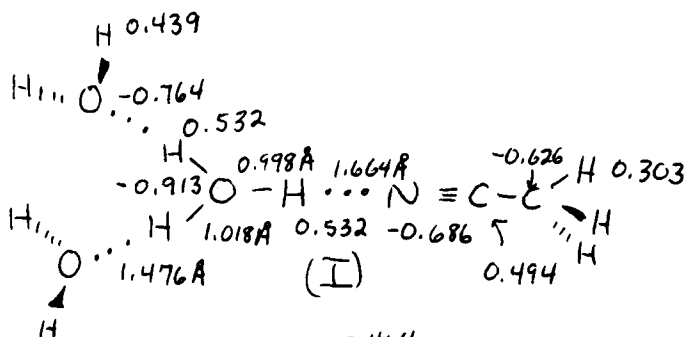 H 0.439
H O -0.764
0.532
H 0.998Å 1.664Å -0.626 H 0.303
-0.913 O - H ... N ≡ C - C
H H 1.018Å 0.532 -0.686 H
O 1.476Å (I) 0.494 H
H